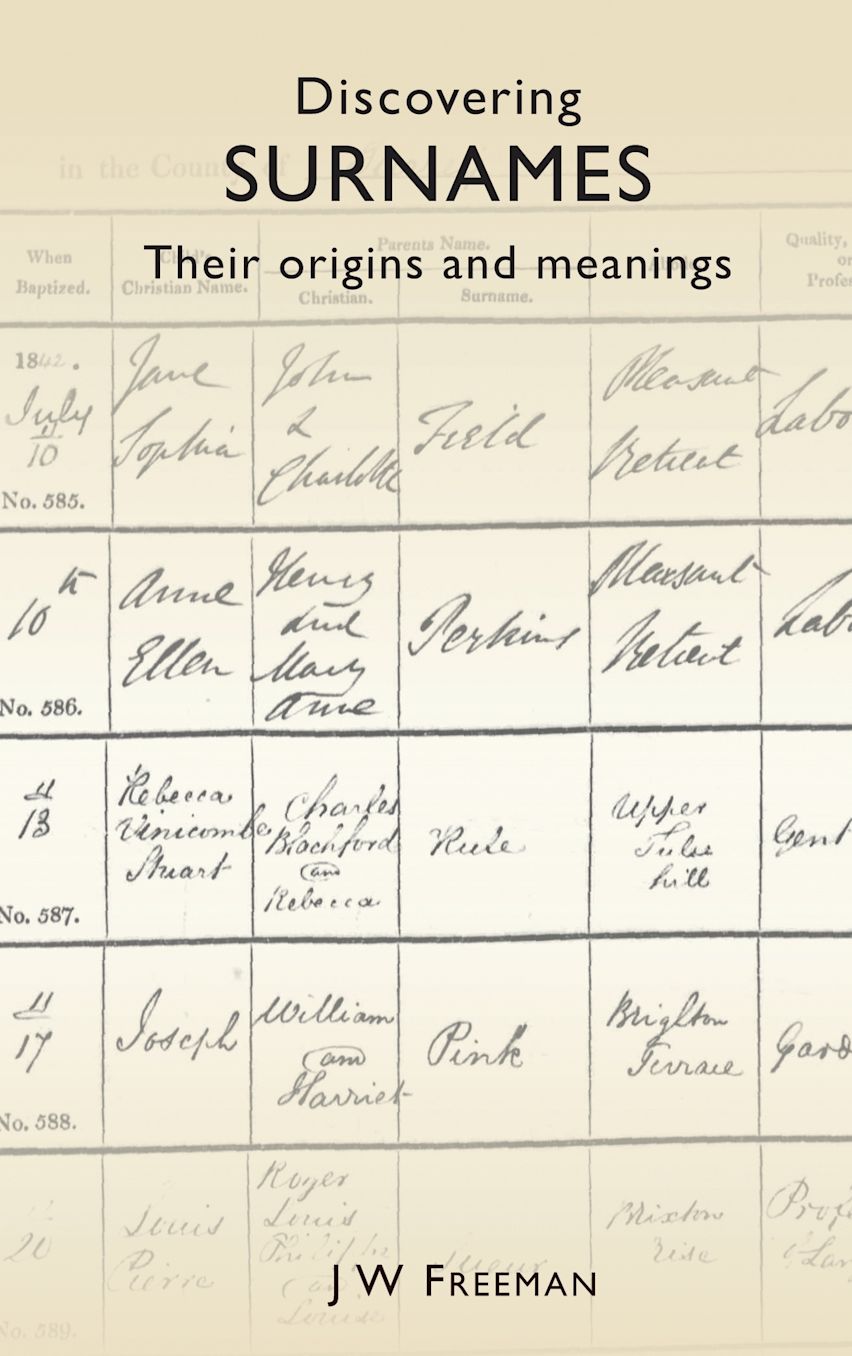 Discovering
in the County of
SURNAMES
Their origins and meanings
When
Baptized.
Child's
Christian Name.
Parents Name.
Christian.
Surname.
Quality,
or
Profes
1842.
July
10
No. 585.
Jane
Sophia
John
&
Charlotte
Field
Pleasant
Retreat
Labo
10
No. 586.
Anne
Ellen
Henry
and
Mary
Anne
Perkins
Pleasant
Retreat
Labo
13
No. 587.
Rebecca
Vinicombe
Stuart
Charles
Blachford
and
Rebecca
Upper
Tulse
hill
Gent
17
No. 588.
Joseph
William
and
Harriet
Pink
Brighton
Terrace
Gard
20
No. 589.
Louis
Pierre
Roger
Louis
and
Louise
Brixton
Rise
Prof
J W FREEMAN